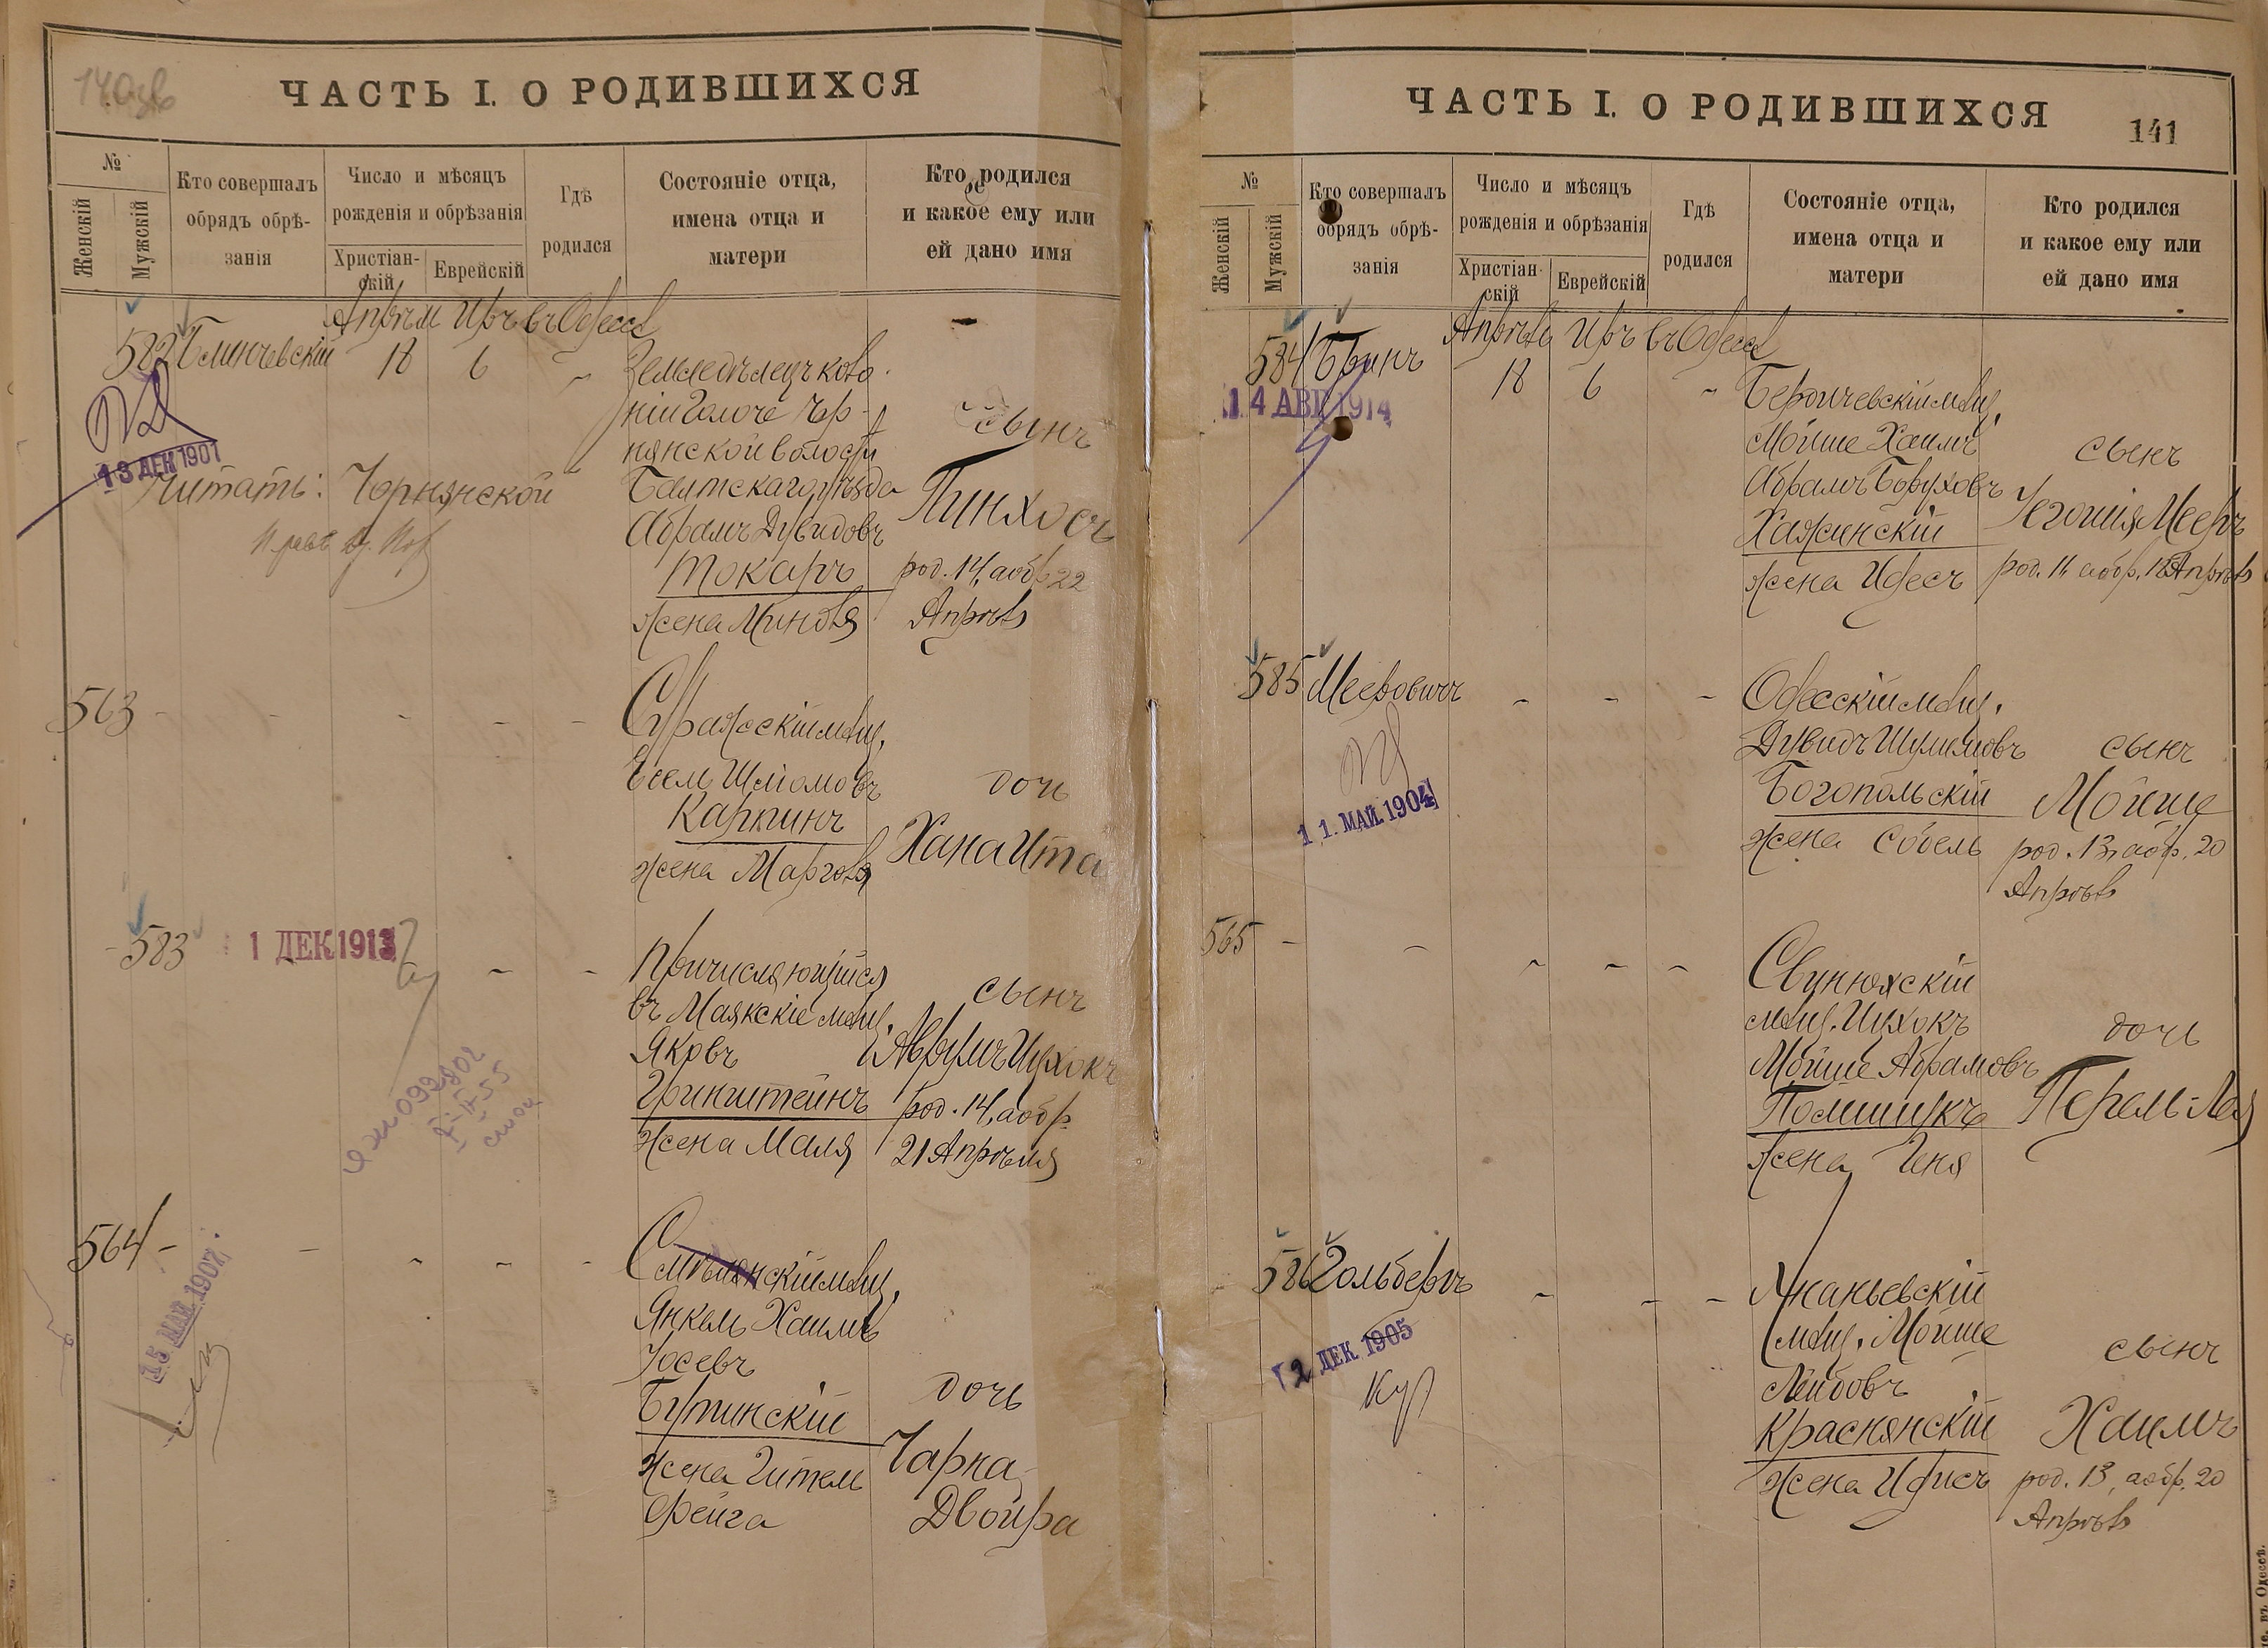 140зв
ЧАСТЬ I. О РОДИВШИХСЯ
№
Женскій
Мужскій
Кто совершалъ
обрядъ обрѣ-
занія
Число и мѣсяцъ
рожденія и обрѣзанія
Христіан-
скій
Еврейскій
Гдѣ
родился
Состояніе отца,
имена отца и
матери
Кто родился
и какое ему или
ей дано имя
Апрѣль Иръ въ Одессѣ
582 Блинчевскій 18 6
Земледѣлецъ коло-
нии Голоче Чер-
нянской волости
Балтскаго уѣзда
Абрамъ Дувидовъ
Токарь
жена Миновя
сынъ
Пинхосъ
род. 14, а обр. 22
Апрѣля
13 ДЕК 1901
Читать: Чорнянской
563
Суражскій мѣщ.
Есель Шліомовъ
Карпинъ
жена Марговя
дочь
Хана Ита
583
1 ДЕК 1913
Причисляющійся
въ Маякскіе мѣщ.
Яковъ
Гринштейнъ
жена Маля
сынъ
Аврумъ Ицхокъ
род. 14, а обр.
21 Апрѣля
564
15 МАЯ 1907
мѣщ.
Янкель Хаимъ
Іосевъ
Бутинскій
жена Гитель
Фейга
дочь
Чарна
Двойра
ЧАСТЬ I. О РОДИВШИХСЯ
141
№
Женскій
Мужскій
Кто совершалъ
обрядъ обрѣ-
занія
Число и мѣсяцъ
рожденія и обрѣзанія
Христіан-
скій
Еврейскій
Гдѣ
родился
Состояніе отца,
имена отца и
матери
Кто родился
и какое ему или
ей дано имя
Апрѣль Иръ въ Одессѣ
584 18 6
14 АВГ 1914
Бердичевскій мѣщ.
Мойше Хаимъ
Абрамъ Боруховъ
Хажинскій
жена Идесъ
сынъ
Іегошія Мееръ
род. 11, а обр. 18 Апрѣля
585 Мееровичъ
11. МАЙ. 1904
Одесскій мѣщ.
Дувидъ Шулимовъ
Богопольскій
жена Собель
сынъ
Мойше
род. 13, а обр. 20
Апрѣля
565
Свунюхскій
мѣщ. Ицхокъ
Мойше Абрамовъ
Полищукъ
жена Геня
дочь
Перель-Лея
586 Гольбергъ
2 ДЕК 1905
Ананьевскій
мѣщ. Мойше
Лейбовъ
Краснянскій
жена Идисъ
сынъ
Хаимъ
род. 13, а обр. 20
Апрѣля
въ Одессѣ.